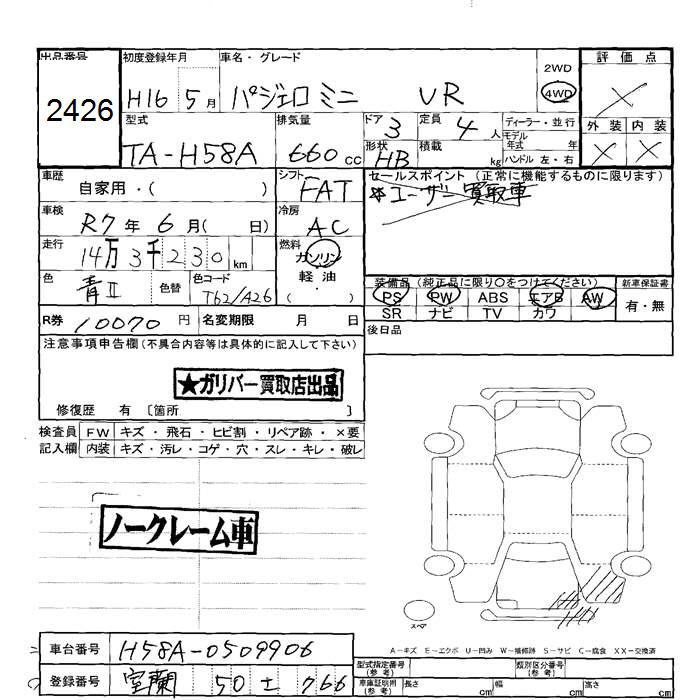 出品番号 初度登録年月 車名・グレード 2WD 評価点
2426 H16 5月 パジェロミニ VR 4WD ×
型式 排気量 ドア 3 定員 4人 ディーラー・並行 外装 内装
TA-H58A 660cc 形状 HB 積載 kg モデル年式 年 × ×
ハンドル 左・右
車歴 自家用・( ) シフト FAT セールスポイント (正常に機能するものに限ります)
車検 R7年 6月( 日) 冷房 AC ★ユーザー買取車
走行 14万3千230km 燃料 ガソリン・軽油・( )
色 青Ⅱ 色替 色コード T62/A26 装備品 (純正品に限り○をつけてください) 新車保証書
PS PW ABS エアB AW 有・無
SR ナビ TV カワ
R券 10070円 名変期限 月 日 後日品
注意事項申告欄(不具合内容等は具体的に記入して下さい)
★ガリバー買取店出品
修復歴 有 〔箇所 〕
検査員 FW キズ・飛石・ヒビ割・リペア跡・×要
記入欄 内装 キズ・汚レ・コゲ・穴・スレ・キレ・破レ
ノークレーム車
スペア
A-キズ E-エクボ U-凹み W-補修跡 S-サビ C-腐食 XX-交換済
車台番号 H58A-0509906 型式指定番号(参考) 類別区分番号(参考)
登録番号 室蘭 50 ± 766 車庫証明用(参考) 長さ cm 幅 cm 高さ cm